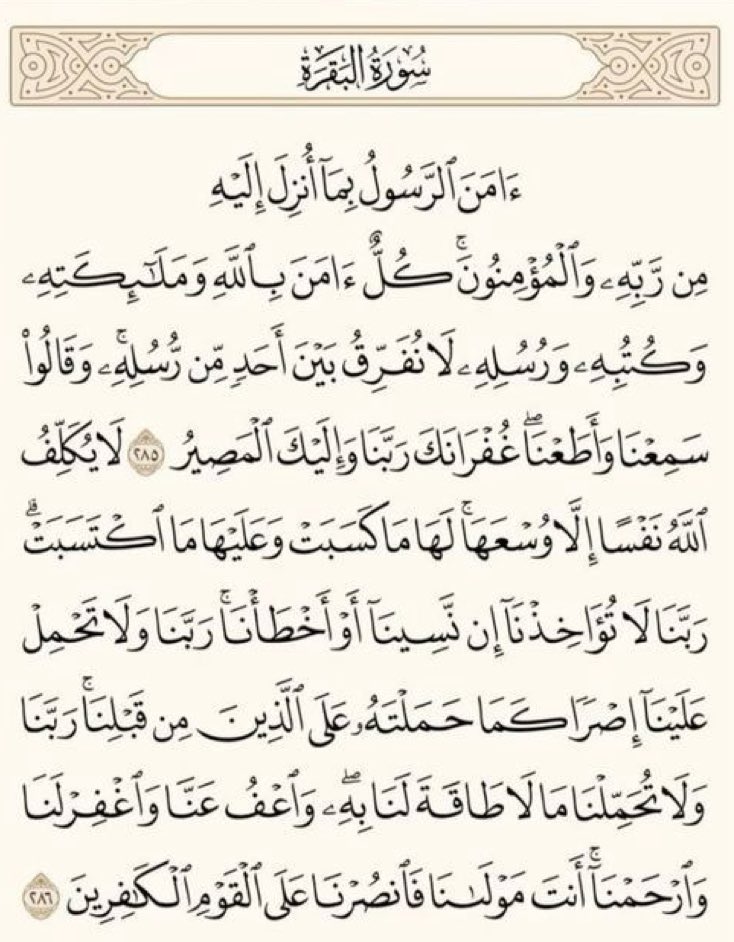 سُورَةُ البَقَرَةِ
ءَامَنَ ٱلرَّسُولُ بِمَآ أُنزِلَ إِلَيْهِ
مِن رَّبِّهِۦ وَٱلْمُؤْمِنُونَۚ كُلٌّ ءَامَنَ بِٱللَّهِ وَمَلَـٰٓئِكَتِهِۦ
وَكُتُبِهِۦ وَرُسُلِهِۦ لَا نُفَرِّقُ بَيْنَ أَحَدٍ مِّن رُّسُلِهِۦۚ وَقَالُوا۟
سَمِعْنَا وَأَطَعْنَاۖ غُفْرَانَكَ رَبَّنَا وَإِلَيْكَ ٱلْمَصِيرُ ٢٨٥ لَا يُكَلِّفُ
ٱللَّهُ نَفْسًا إِلَّا وُسْعَهَاۚ لَهَا مَا كَسَبَتْ وَعَلَيْهَا مَا ٱكْتَسَبَتْۗ
رَبَّنَا لَا تُؤَاخِذْنَآ إِن نَّسِينَآ أَوْ أَخْطَأْنَاۚ رَبَّنَا وَلَا تَحْمِلْ
عَلَيْنَآ إِصْرًا كَمَا حَمَلْتَهُۥ عَلَى ٱلَّذِينَ مِن قَبْلِنَاۚ رَبَّنَا
وَلَا تُحَمِّلْنَا مَا لَا طَاقَةَ لَنَا بِهِۦۖ وَٱعْفُ عَنَّا وَٱغْفِرْ لَنَا
وَٱرْحَمْنَآۚ أَنتَ مَوْلَىٰنَا فَٱنصُرْنَا عَلَى ٱلْقَوْمِ ٱلْكَـٰفِرِينَ ٢٨٦